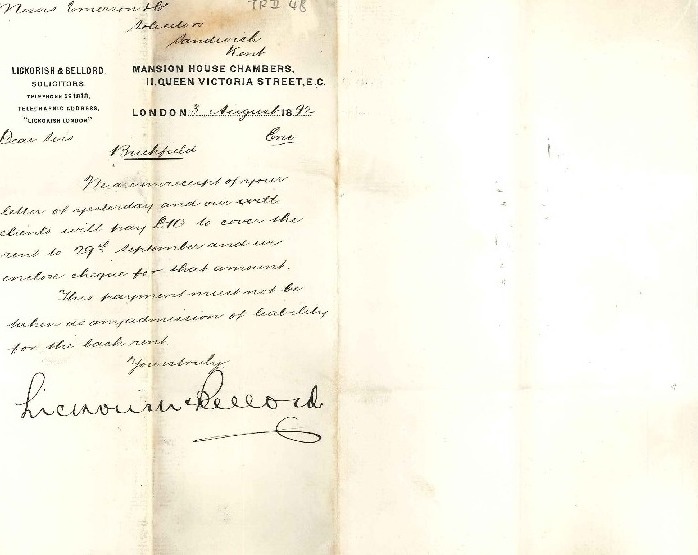 Messrs Emerson & Co
TRD 48
Solicitors
Sandwich
Kent
LICKORISH & BELLORD.
SOLICITORS.
TELEPHONE Nº 1818.
TELEGRAPHIC ADDRESS,
"LICKORISH LONDON"
MANSION HOUSE CHAMBERS,
11, QUEEN VICTORIA STREET, E.C.
LONDON 3 August 1892
Enc
Dear Sirs
Buckfield
We are in receipt of your
letter of yesterday and our
clients will pay £10 to cover the
rent to 29th September and we
enclose cheque for that amount.
This payment must not be
taken as any admission of liability
for the back rent.
Yours truly
Lickorish & Bellord